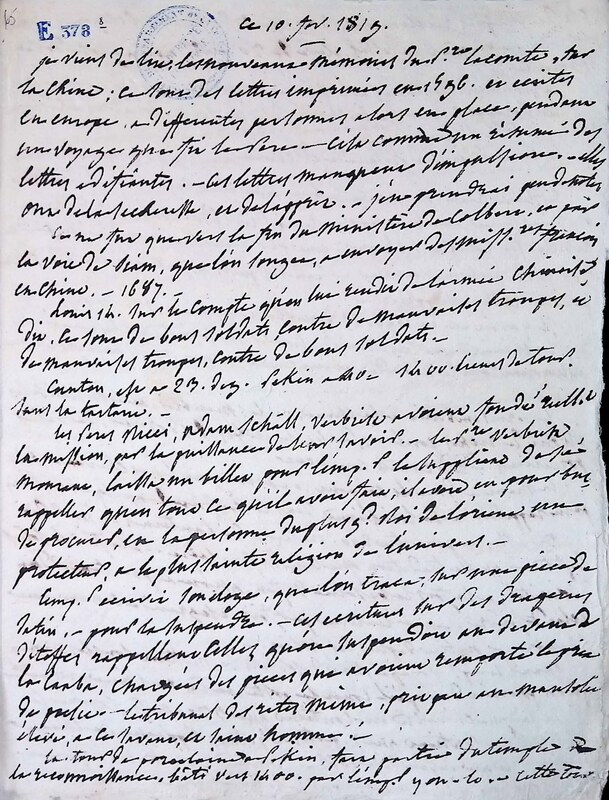 65
E 378 8
ce 10. fev. 1819.
je viens de lire, les nouveaux mémoires du P. lecomte, sur
la chine; ce sont des lettres imprimées en 1696. et ecrites
en europe, a differentes personnes alors en place, pendant
un voyage que fit le Pere - cela comme un résumé des
lettres edifiantes. - ces lettres manquent d'impulsion. - elles
ont de la secheresse, et de - je ne prendrai que de notes
ce ne fut que vers la fin du Ministère de Colbert, et par
la voie de Siam, que l'on songea, a envoyer des miss.res françois
en chine. - 1687.
Louis 14. sur le compte qu'on lui rendit de l'armée chinoise
dit, ce sont de bons soldats, contre de mauvaises troupes, et
de mauvaises troupes, contre de bons soldats. -
Canton, est a 23. deg. Pekin a 40 = 1400. lieues de tour
sans la tartarie. -
les Peres Ricci, adam schall, verbiest avoient fondé
la mission, par la puissance de leur savoir. - le P. verbiest
mourant, laissa un billet pour l'emp. le suppliant de se
rappeller qu'en tout ce qu'il avoit fait, il avoit eu pour but
de procurer, en la personne du plus gd. Roi de l'orient un
protecteur, a la plus sainte religion de l'univers. -
l'emp. ecrivit son eloge, que l'on traça, sur une piece de
satin, - pour la suspendre. - ces ecritures sur des
d'etoffes rappellent celles, qu'on suspendoit au devant de
la caaba, chargées des pieces qui avoient remporté le prix
de poesie. - le tribunal des rites même, un mausolée
élevé, a ce savant, et saint homme. -
la tour de porcelaine a Pekin, fait partie du temple de
la reconnoissance, bâti vers 1400. par l'emp. yon-lo - cette tour